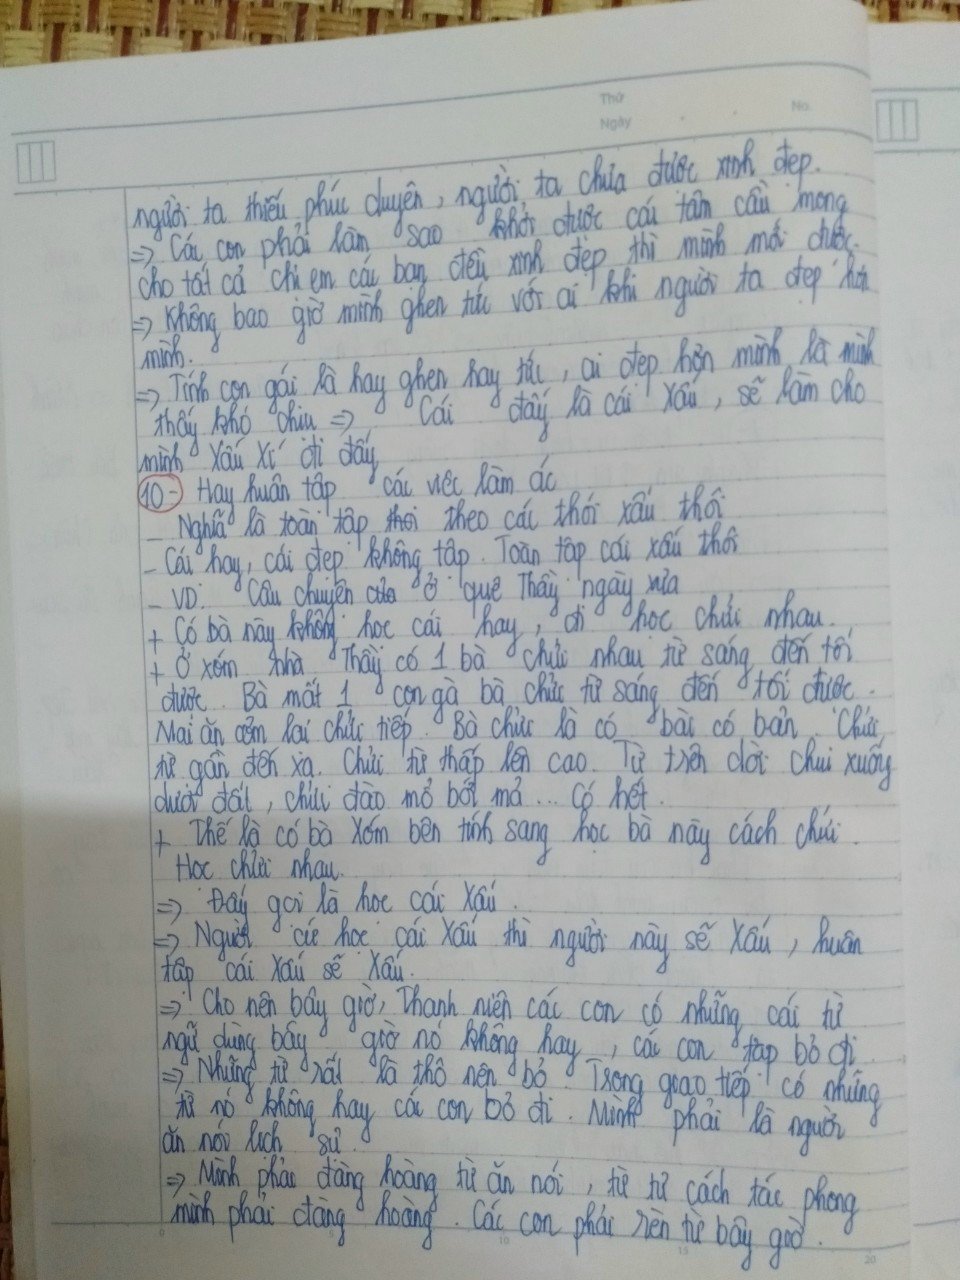 Thứ
No.
Ngày
người ta thiếu phúc duyên, người ta chưa được xinh đẹp.
=> Các con phải làm sao khởi được cái tâm cầu mong
cho tất cả chị em các bạn đều xinh đẹp thì mình mới được.
=> Không bao giờ mình ghen tức với ai khi người ta đẹp hơn
mình.
=> Tính con gái là hay ghen hay tức, ai đẹp hơn mình là mình
thấy khó chịu => Cái đấy là cái xấu, sẽ làm cho
mình xấu xí đi đấy
10- Hay huân tập các việc làm ác
- Nghĩa là toàn tập thói theo các thói xấu thôi
- Cái hay, cái đẹp không tập. Toàn tập cái xấu thôi
- VD: Câu chuyện của ở quê Thầy ngày xưa
+ Có bà này không học cái hay, đi học chửi nhau.
+ Ở xóm nhà Thầy có 1 bà chửi nhau từ sáng đến tối
được. Bà mất 1 con gà bà chửi từ sáng đến tối được.
Mai ăn cơm lại chửi tiếp. Bà chửi là có bài có bản. Chửi
từ gần đến xa. Chửi từ thấp lên cao. Từ trên dời chui xuống
dưới đất, chửi đào mồ bốt mả... có hết.
+ Thế là có bà xóm bên tính sang học bà này cách chửi.
Học chửi nhau.
=> Đấy gọi là học cái xấu.
=> Người cứ học cái xấu thì người này sẽ xấu, huân
tập cái xấu sẽ xấu.
=> Cho nên bây giờ, Thanh niên các con có những cái từ
ngữ dùng bây giờ nó không hay, các con tập bỏ đi.
=> Những từ rất là thô nên bỏ. Trong giao tiếp có những
từ nó không hay các con bỏ đi. Mình phải là người
ăn nói lịch sự.
=> Mình phải đàng hoàng từ ăn nói, từ từ cách tác phong
mình phải đàng hoàng. Các con phải rèn từ bây giờ.
0
10
15
20